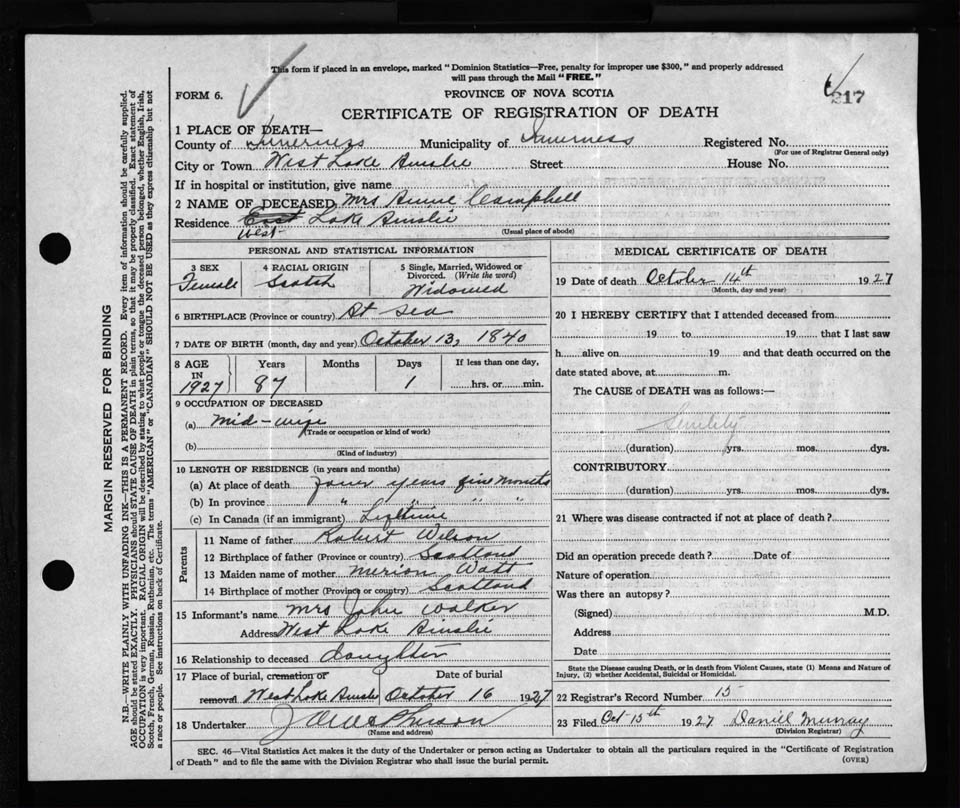 This form if placed in an envelope, marked "Dominion Statistics—Free, penalty for improper use $300," and properly addressed
will pass through the Mail "FREE."
FORM 6.
PROVINCE OF NOVA SCOTIA
217
CERTIFICATE OF REGISTRATION OF DEATH
1 PLACE OF DEATH—
County of Inverness Municipality of Inverness Registered No.
(For use of Registrar General only)
City or Town West Lake Ainslie Street House No.
If in hospital or institution, give name
2 NAME OF DECEASED Mrs Annie Campbell
Residence East Lake Ainslie
West
(Usual place of abode)
PERSONAL AND STATISTICAL INFORMATION
3 SEX 4 RACIAL ORIGIN 5 Single, Married, Widowed or
Divorced. (Write the word)
Female Scotch Widowed
6 BIRTHPLACE (Province or country) At Sea
7 DATE OF BIRTH (month, day and year) October 13, 1840
8 AGE Years Months Days If less than one day,
IN
1927 87 1 hrs. or min.
9 OCCUPATION OF DECEASED
(a) Mid-wife
(Trade or occupation or kind of work)
(b)
(Kind of industry)
10 LENGTH OF RESIDENCE (in years and months)
(a) At place of death Four years five months
(b) In province " " " "
(c) In Canada (if an immigrant) Lifetime
Parents
11 Name of father Robert Wilson
12 Birthplace of father (Province or country) Scotland
13 Maiden name of mother Merion Watt
14 Birthplace of mother (Province or country) Scotland
15 Informant's name Mrs John Walker
Address West Lake Ainslie
16 Relationship to deceased Daughter
17 Place of burial, cremation or Date of burial
removal West Lake Ainslie October 16 1927
18 Undertaker
(Name and address)
MEDICAL CERTIFICATE OF DEATH
19 Date of death October 14th 1927
(Month, day and year)
20 I HEREBY CERTIFY that I attended deceased from
19 to 19 that I last saw
h alive on 19 and that death occurred on the
date stated above, at m.
The CAUSE of DEATH was as follows:
Senility
(duration) yrs. mos. dys.
CONTRIBUTORY
(duration) yrs. mos. dys.
21 Where was disease contracted if not at place of death?
Did an operation precede death? Date of
Nature of operation
Was there an autopsy?
(Signed) M.D.
Address
Date
State the Disease causing Death, or in death from Violent Causes, state (1) Means and Nature of
Injury, (2) whether Accidental, Suicidal or Homicidal.
22 Registrar's Record Number 15
23 Filed Oct 15th 1927 Daniel Murray
(Division Registrar)
SEC. 46—Vital Statistics Act makes it the duty of the Undertaker or person acting as Undertaker to obtain all the particulars required in the "Certificate of Registration
of Death" and to file the same with the Division Registrar who shall issue the burial permit.
(OVER)
MARGIN RESERVED FOR BINDING
N.B.—WRITE PLAINLY WITH UNFADING INK—THIS IS A PERMANENT RECORD. Every item of information should be carefully supplied.
AGE should be stated EXACTLY. PHYSICIANS should STATE CAUSE OF DEATH in plain terms, so that it may be properly classified. Exact statement of
OCCUPATION is very important. RACIAL ORIGIN will be described by stating to what people or tongue the deceased person belonged, whether English, Irish,
Scotch, French, German, Russian, Ruthenian, etc. The terms "AMERICAN" or "CANADIAN" SHOULD NOT BE USED as they express citizenship but not
a race or people. See instructions on back of Certificate.